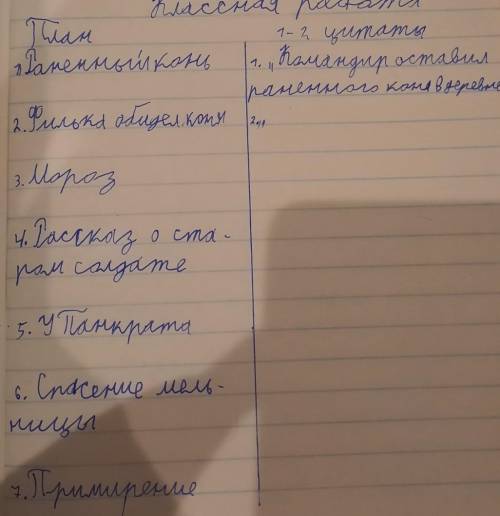 Классная работа
План
1-2 цитаты
1. Раненный конь
2. Филька обидел коня
3. Мороз
4. Рассказ о ста-
ром солдате
5. У Панкрата
6. Спасение мель-
ницы
7. Примирение
1. „Командир оставил
раненного коня в деревне
2. „